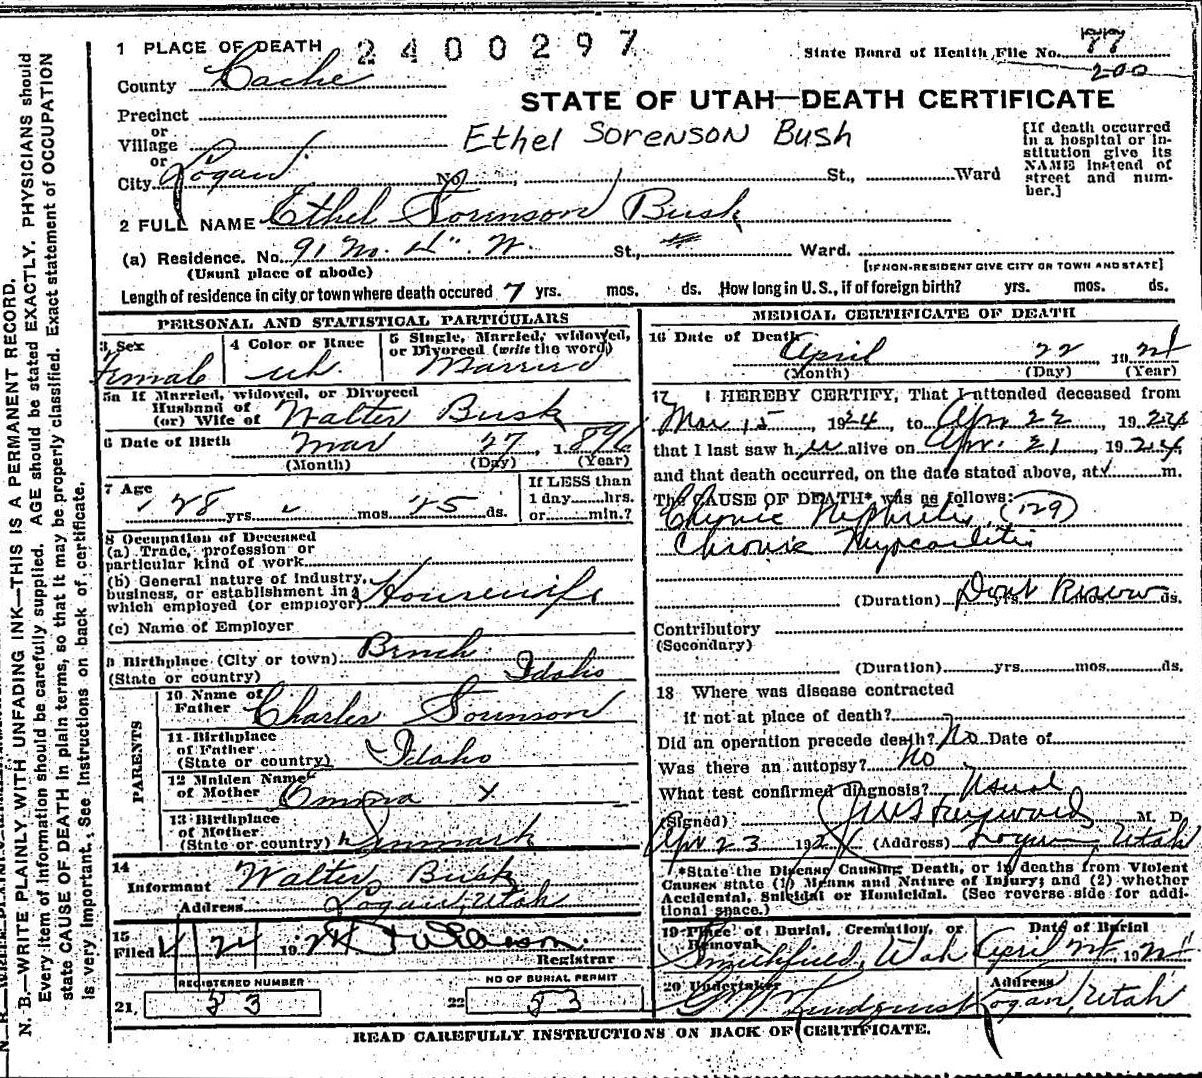 N. B.—WRITE PLAINLY WITH UNFADING INK—THIS IS A PERMANENT RECORD.
Every item of information should be carefully supplied. AGE should be stated EXACTLY. PHYSICIANS should
state CAUSE OF DEATH in plain terms, so that it may be properly classified. Exact statement of OCCUPATION
is very important. See instructions on back of certificate.
1 PLACE OF DEATH 2400297 State Board of Health File No. 77
200
County Cache
STATE OF UTAH—DEATH CERTIFICATE
Precinct
or
Village
Ethel Sorenson Bush
[If death occurred
in a hospital or in-
stitution give its
NAME instead of
street and num-
ber.]
or
City Logan No. , St., Ward
2 FULL NAME Ethel Sorenson Busk
(a) Residence. No. 91 No. 4" W. St., Ward.
(Usual place of abode) [IF NON-RESIDENT GIVE CITY OR TOWN AND STATE]
Length of residence in city or town where death occured 7 yrs. mos. ds. How long in U.S., if of foreign birth? yrs. mos. ds.
PERSONAL AND STATISTICAL PARTICULARS
3 Sex
Female
4 Color or Race
wh.
5 Single, Married, widowed,
or Divorced (write the word)
Married
5a If Married, widowed, or Divorced
Husband of
(or) Wife of Walter Busk
6 Date of Birth Mar 27, 1896
(Month) (Day) (Year)
7 Age
28 yrs. mos. 25 ds.
If LESS than
1 day hrs.
or min.?
8 Occupation of Deceased
(a) Trade, profession or
particular kind of work
(b) General nature of industry,
business, or establishment in
which employed (or employer) Housewife
(c) Name of Employer
9 Birthplace (City or town)
(State or country) Idaho
PARENTS
10 Name of
Father Charles Sorenson
11 Birthplace
of Father
(State or country) Idaho
12 Maiden Name
of Mother Emma X
13 Birthplace
of Mother
(State or country) Denmark
14
Informant Walter Busk
Address Logan, Utah
15
Filed 4 24 1924
Registrar
REGISTERED NUMBER
21. 83
NO OF BURIAL PERMIT
22 83
MEDICAL CERTIFICATE OF DEATH
16 Date of Death April 22 1924
(Month) (Day) (Year)
17 I HEREBY CERTIFY, That I attended deceased from
Mar 15, 1924, to Apr 22, 1924
that I last saw her alive on Apr. 21, 1924,
and that death occurred, on the date stated above, at m.
The CAUSE OF DEATH* was as follows:
Chronic Nephritis (129)
Chronic Myocarditis
(Duration) Dont Know yrs. ds.
Contributory
(Secondary)
(Duration) yrs. mos. ds.
18 Where was disease contracted
if not at place of death?
Did an operation precede death? No Date of
Was there an autopsy? No
What test confirmed diagnosis? Usual
(Signed) M. D.
Apr 23 1924 (Address) Logan, Utah
*State the Disease Causing Death, or in deaths from Violent
Causes state (1) Means and Nature of Injury; and (2) whether
Accidental, Suicidal or Homicidal. (See reverse side for addi-
tional space.)
19 Place of Burial, Cremation, or
Removal
Smithfield, Utah
Date of Burial
April 24, 1924
20 Undertaker
Address
Logan, Utah
READ CAREFULLY INSTRUCTIONS ON BACK OF CERTIFICATE.